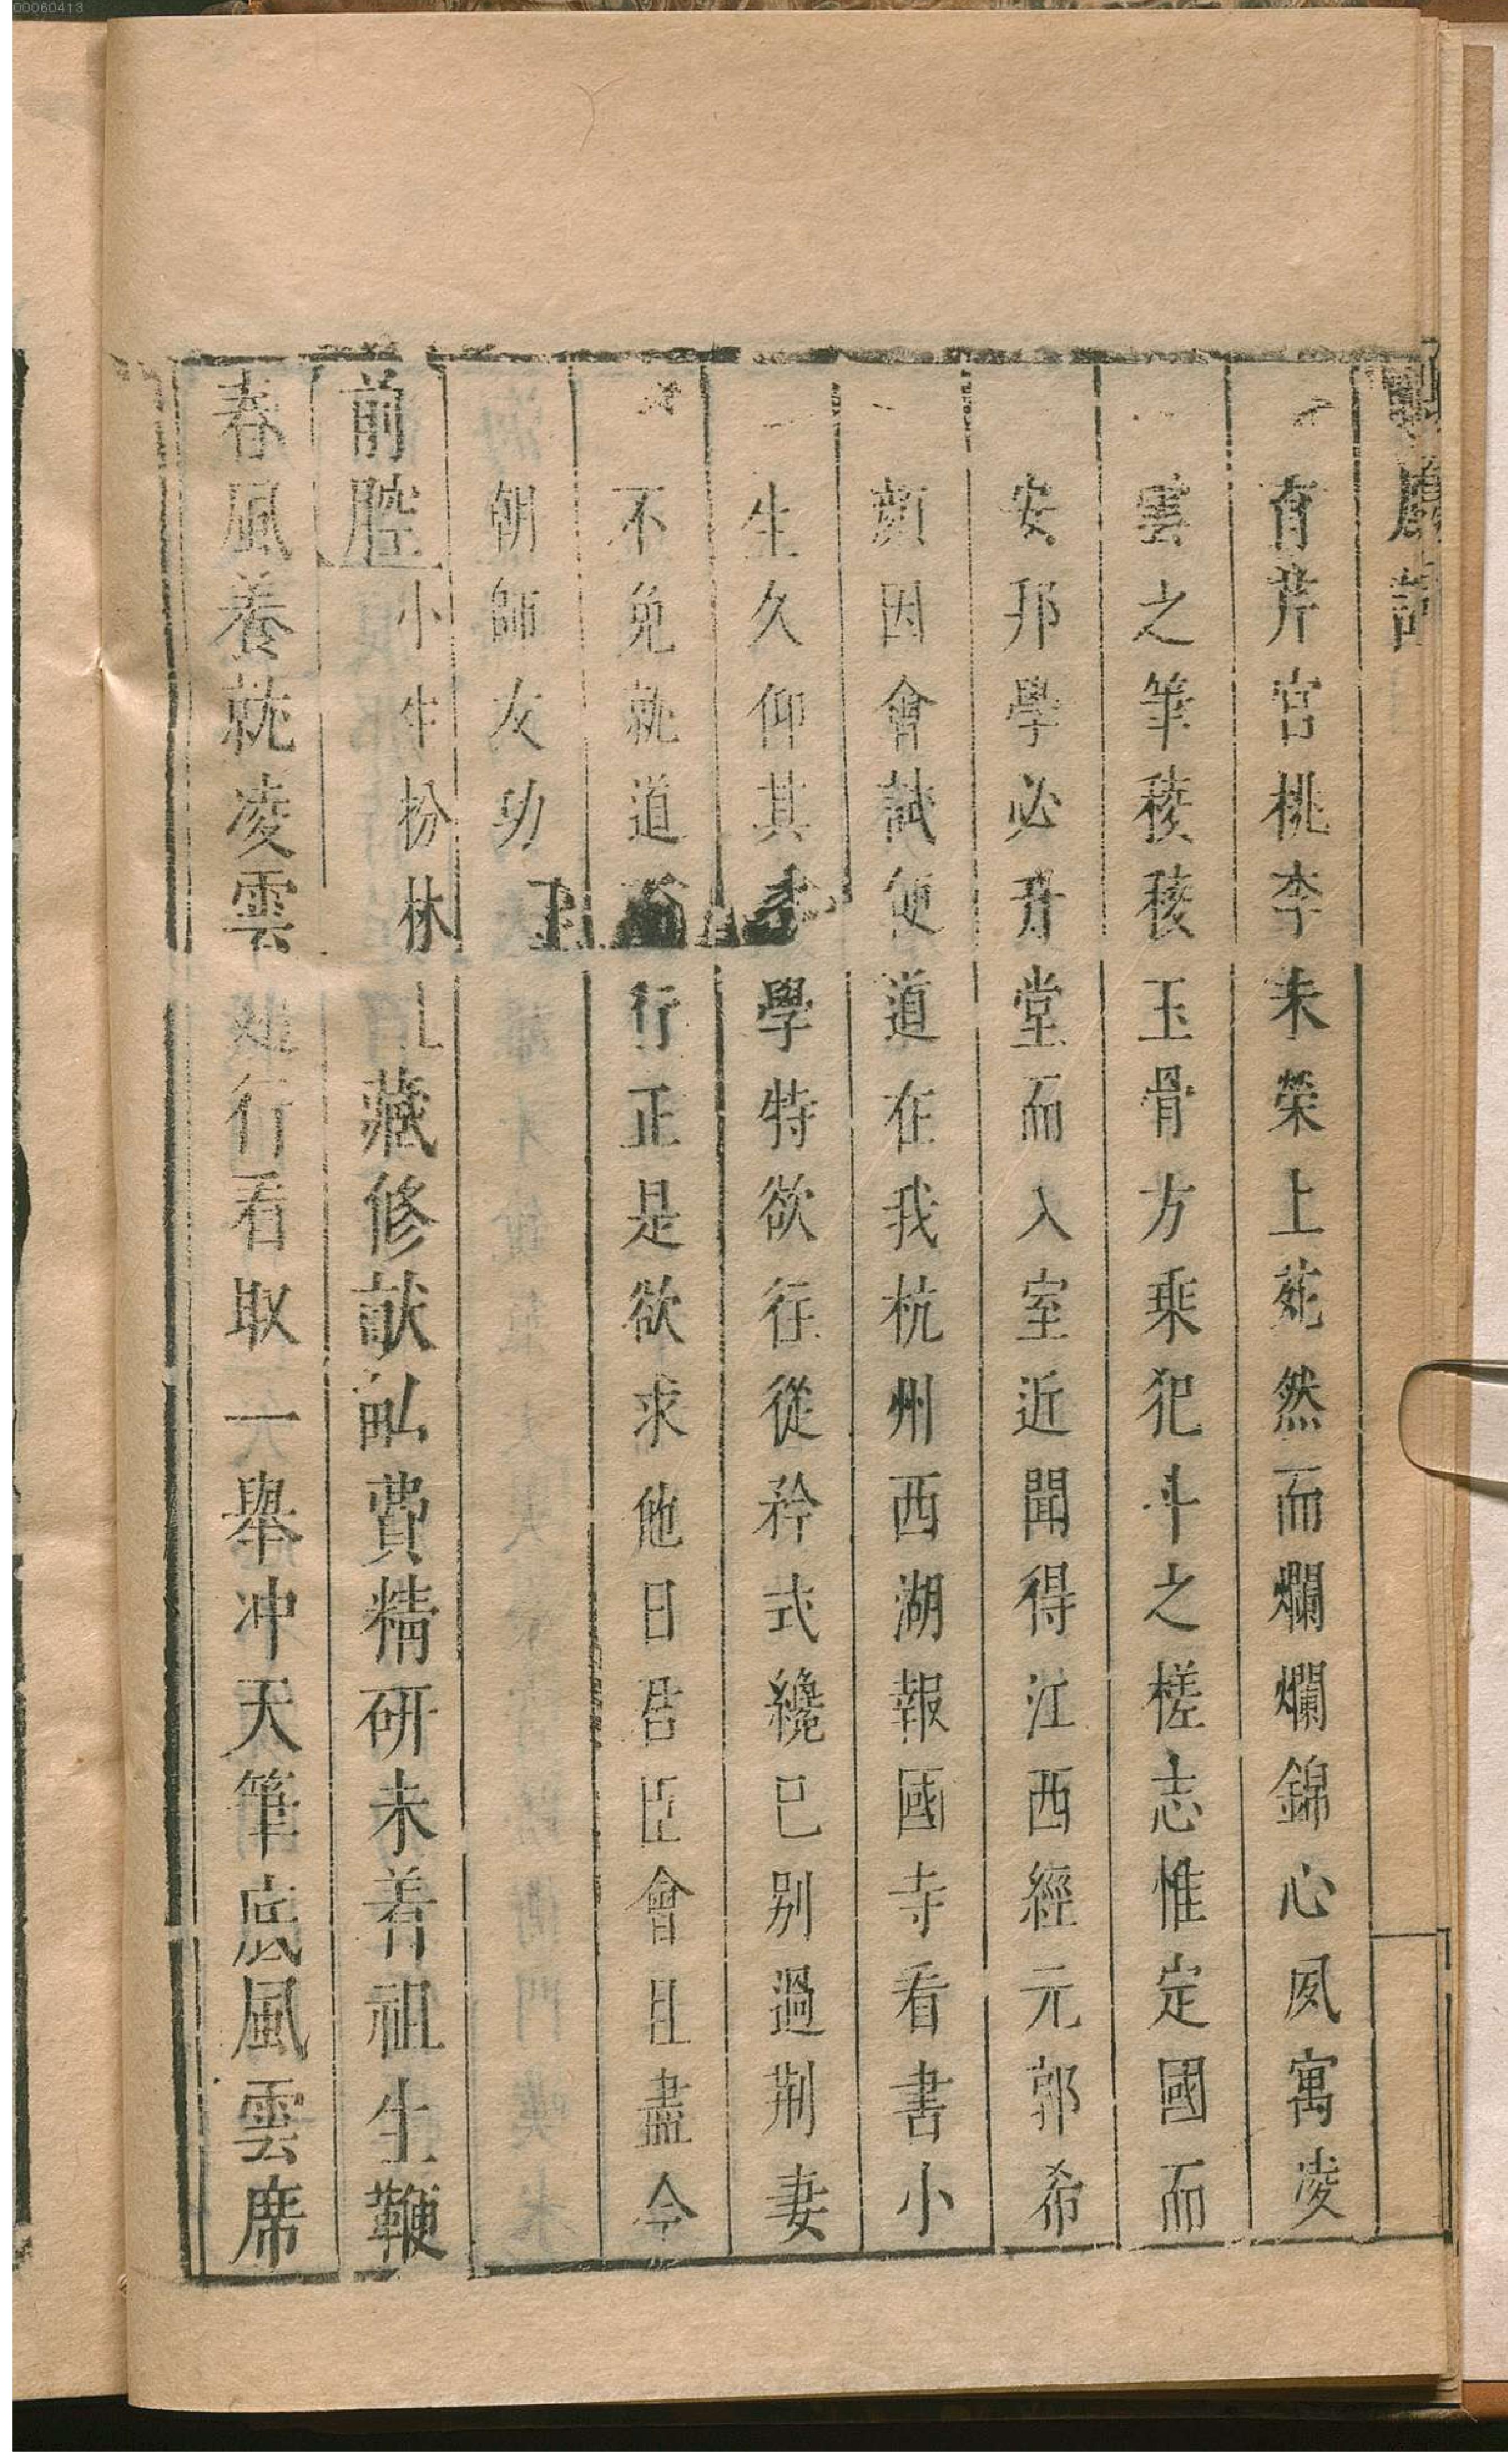 00060413
育芹宮桃李未榮上苑然而爛爛錦心夙寓凌
雲之筆稜稜玉骨方乘犯斗之槎志惟定國而
安邦學必升堂而入室近聞得江西經元郭希
顏因會試便道在我杭州西湖報國寺看書小
生久仰其學特欲往從矜式纔已别過荆妻
不免就道行正是欲求他日君臣會且盡今
朝師友功
前腔小生扮林上藏修畎畝費精研未着祖生鞭
春風養就凌雲行看取一舉冲天筆底風雲席